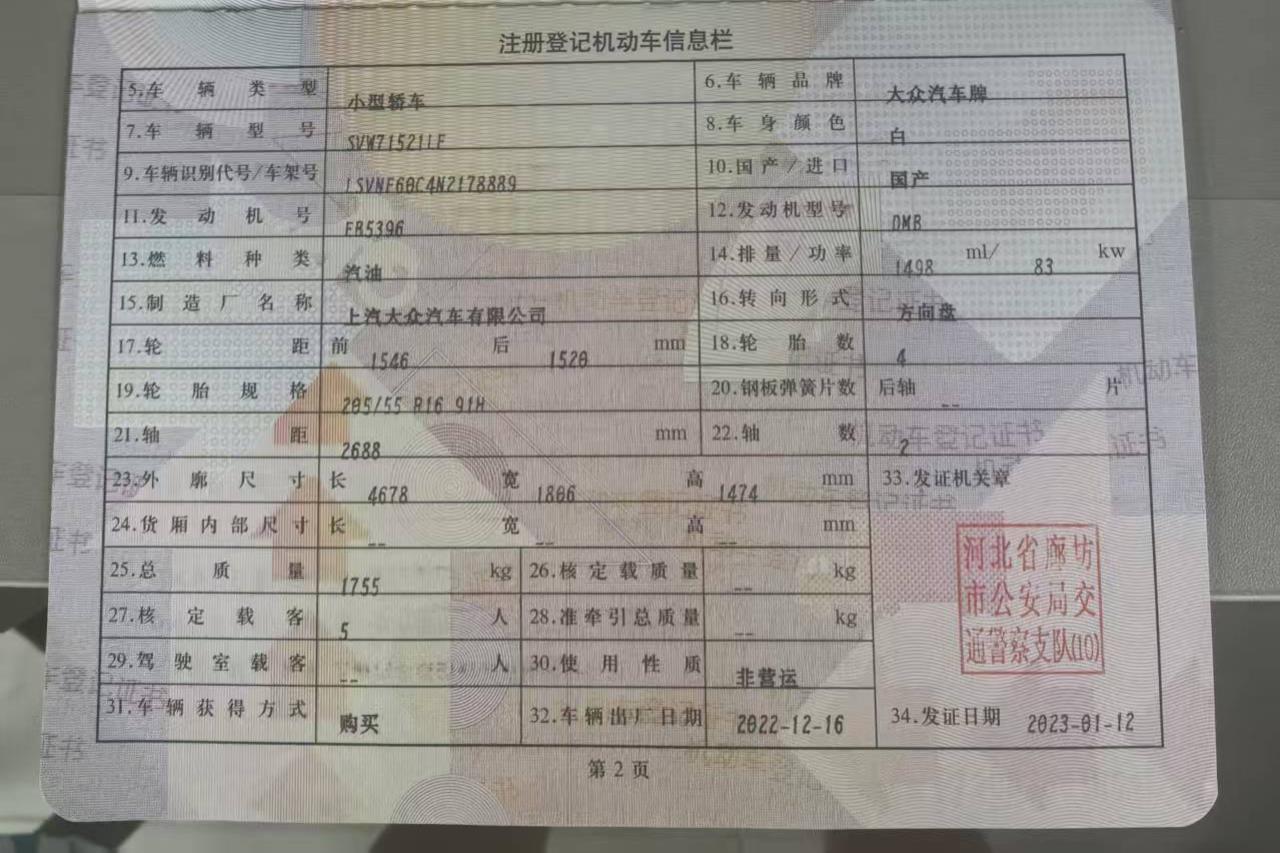 注册登记机动车信息栏
5.车辆类型 小型轿车 6.车辆品牌 大众汽车牌
7.车辆型号 SVW71521LF 8.车身颜色 白
9.车辆识别代号/车架号 LSVNF60C4N2178889 10.国产/进口 国产
11.发动机号 FB5396 12.发动机型号 DMB
13.燃料种类 汽油 14.排量/功率 1498 ml/ 83 kw
15.制造厂名称 上汽大众汽车有限公司 16.转向形式 方向盘
17.轮距 前 1546 后 1520 mm 18.轮胎数 4
19.轮胎规格 205/55 R16 91H 20.钢板弹簧片数 后轴 -- 片
21.轴距 2688 mm 22.轴数 2
23.外廓尺寸 长 4678 宽 1806 高 1474 mm 33.发证机关章
24.货厢内部尺寸 长 -- 宽 -- 高 -- mm
25.总质量 1755 kg 26.核定载质量 -- kg
27.核定载客 5 人 28.准牵引总质量 -- kg
29.驾驶室载客 -- 人 30.使用性质 非营运
河北省廊坊
市公安局交
通警察支队(10)
31.车辆获得方式 购买 32.车辆出厂日期 2022-12-16 34.发证日期 2023-01-12
第2页